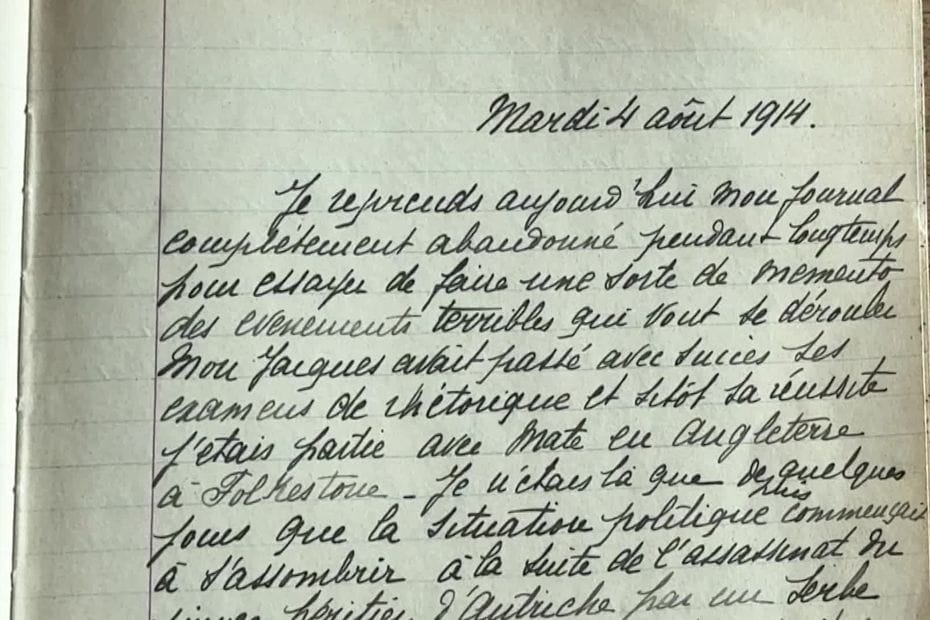 Mardi 4 aôut 1914.
Je reprends aujourd'hui mon journal
complétement abandonné pendant longtemps
pour essayer de faire une sorte de memento
des evenements terribles qui vont se dérouler
Mon Jacques avait passé avec succes ses
examens de rhétorique et sitôt sa réussite
j'etais partie avec Mate en Angleterre
à Folkestone - Je n'étais là que depuis quelques
jours que la situation politique commençait
à s'assombrir à la suite de l'assassinat du
prince héritier d'Autriche par un Serbe